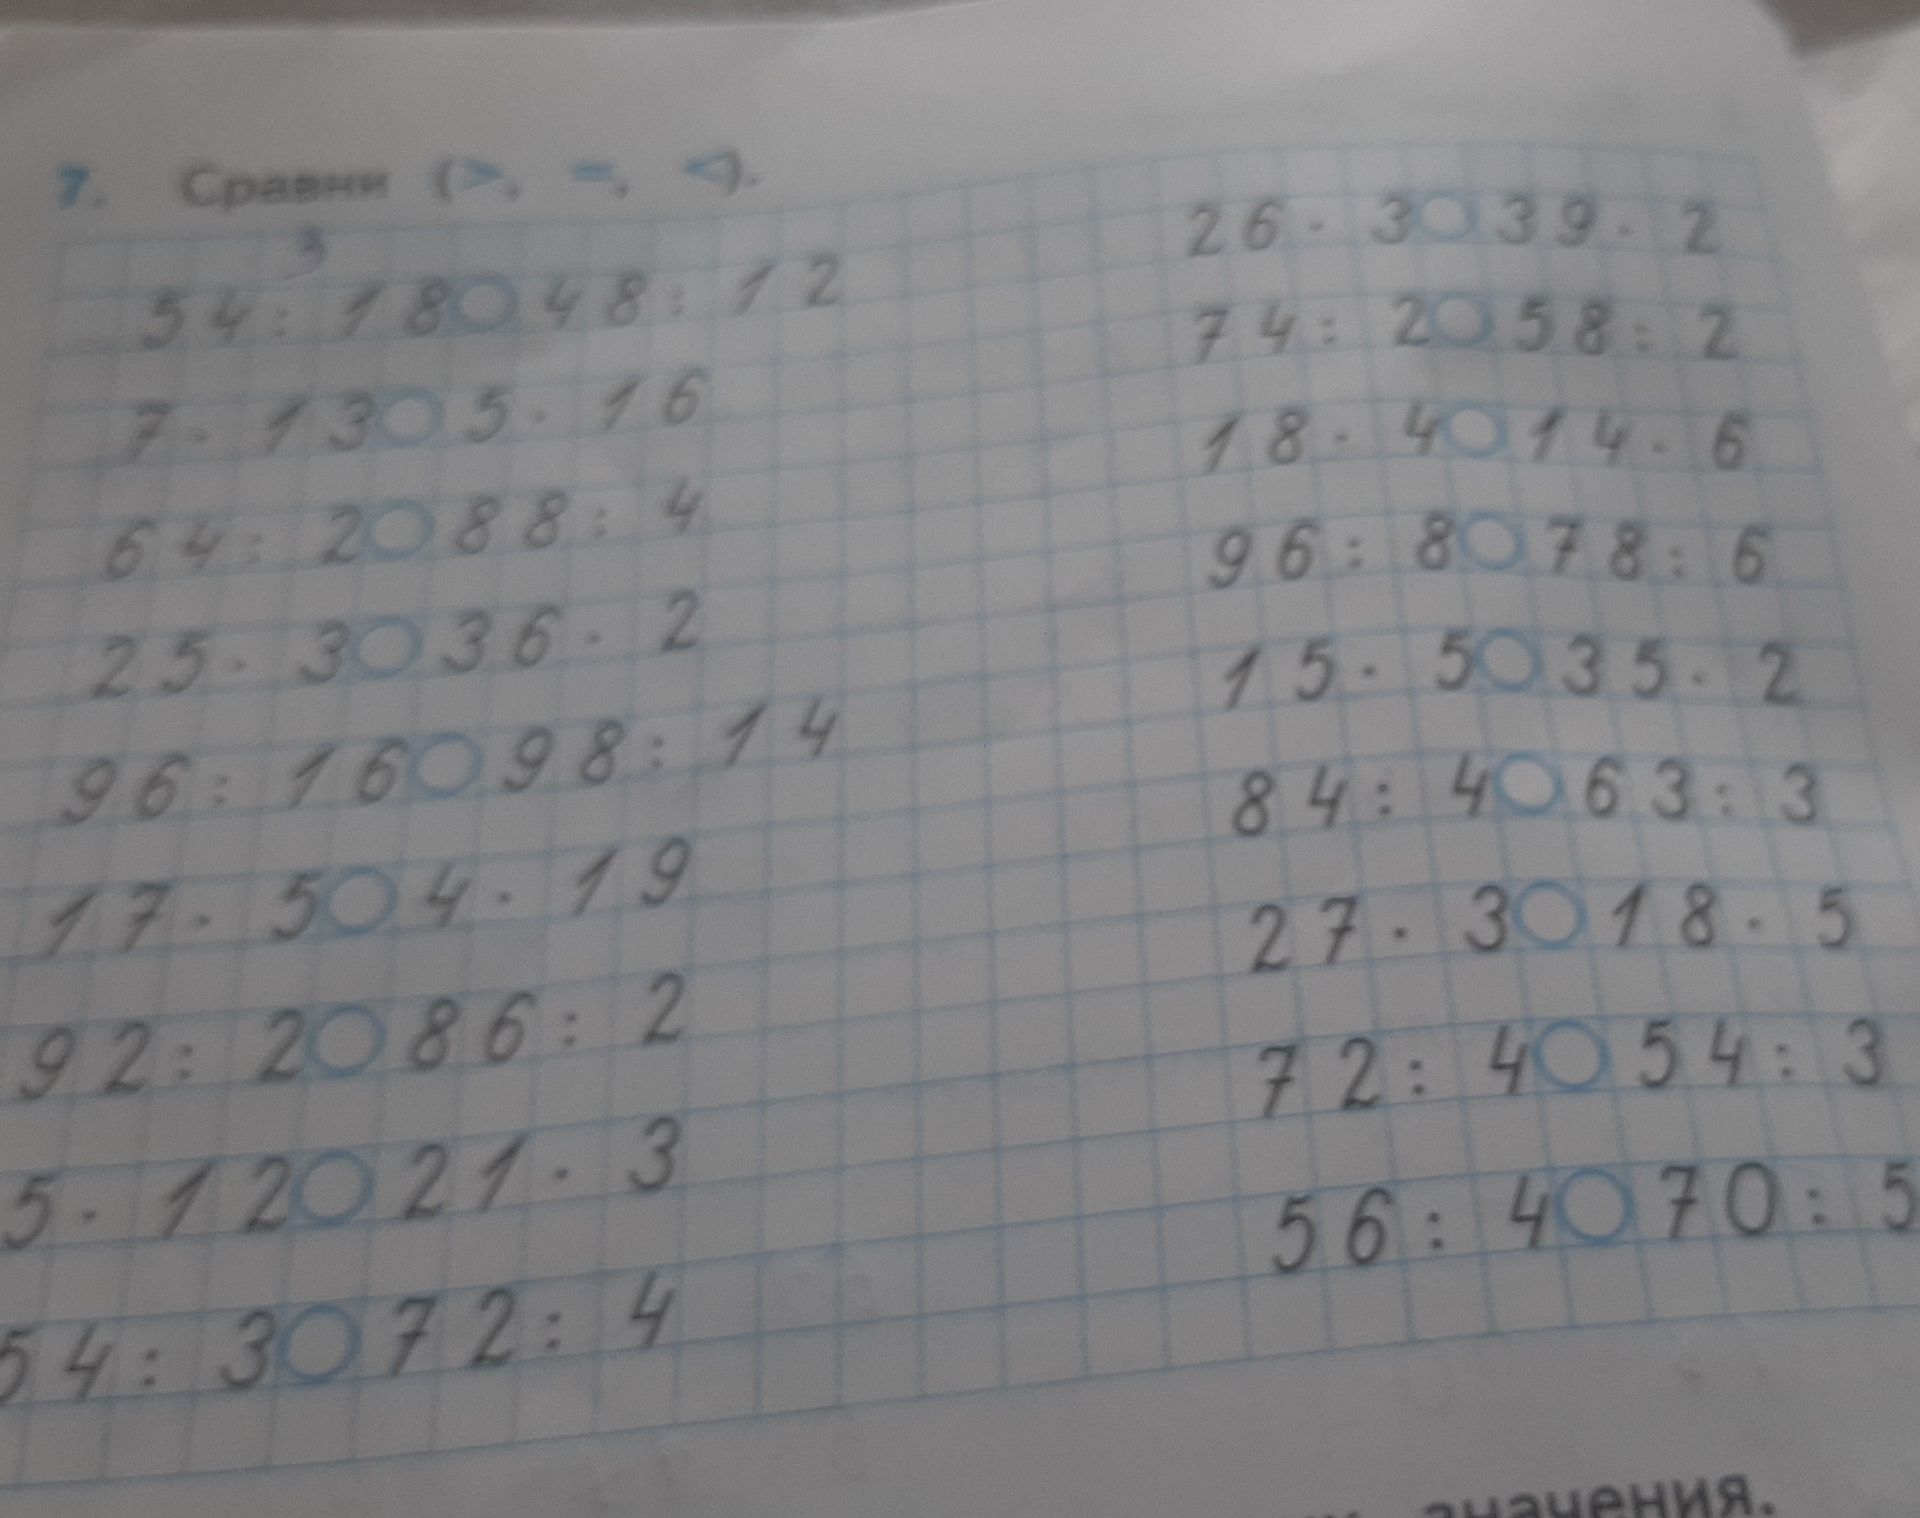 7. Сравни (>, =, <).
3
54 : 18 ○ 48 : 12
7 · 13 ○ 5 · 16
64 : 2 ○ 88 : 4
25 · 3 ○ 36 · 2
96 : 16 ○ 98 : 14
17 · 5 ○ 4 · 19
92 : 2 ○ 86 : 2
5 · 12 ○ 21 · 3
54 : 3 ○ 72 : 4
26 · 3 ○ 39 · 2
74 : 2 ○ 58 : 2
18 · 4 ○ 14 · 6
96 : 8 ○ 78 : 6
15 · 5 ○ 35 · 2
84 : 4 ○ 63 : 3
27 · 3 ○ 18 · 5
72 : 4 ○ 54 : 3
56 : 4 ○ 70 : 5
значения.